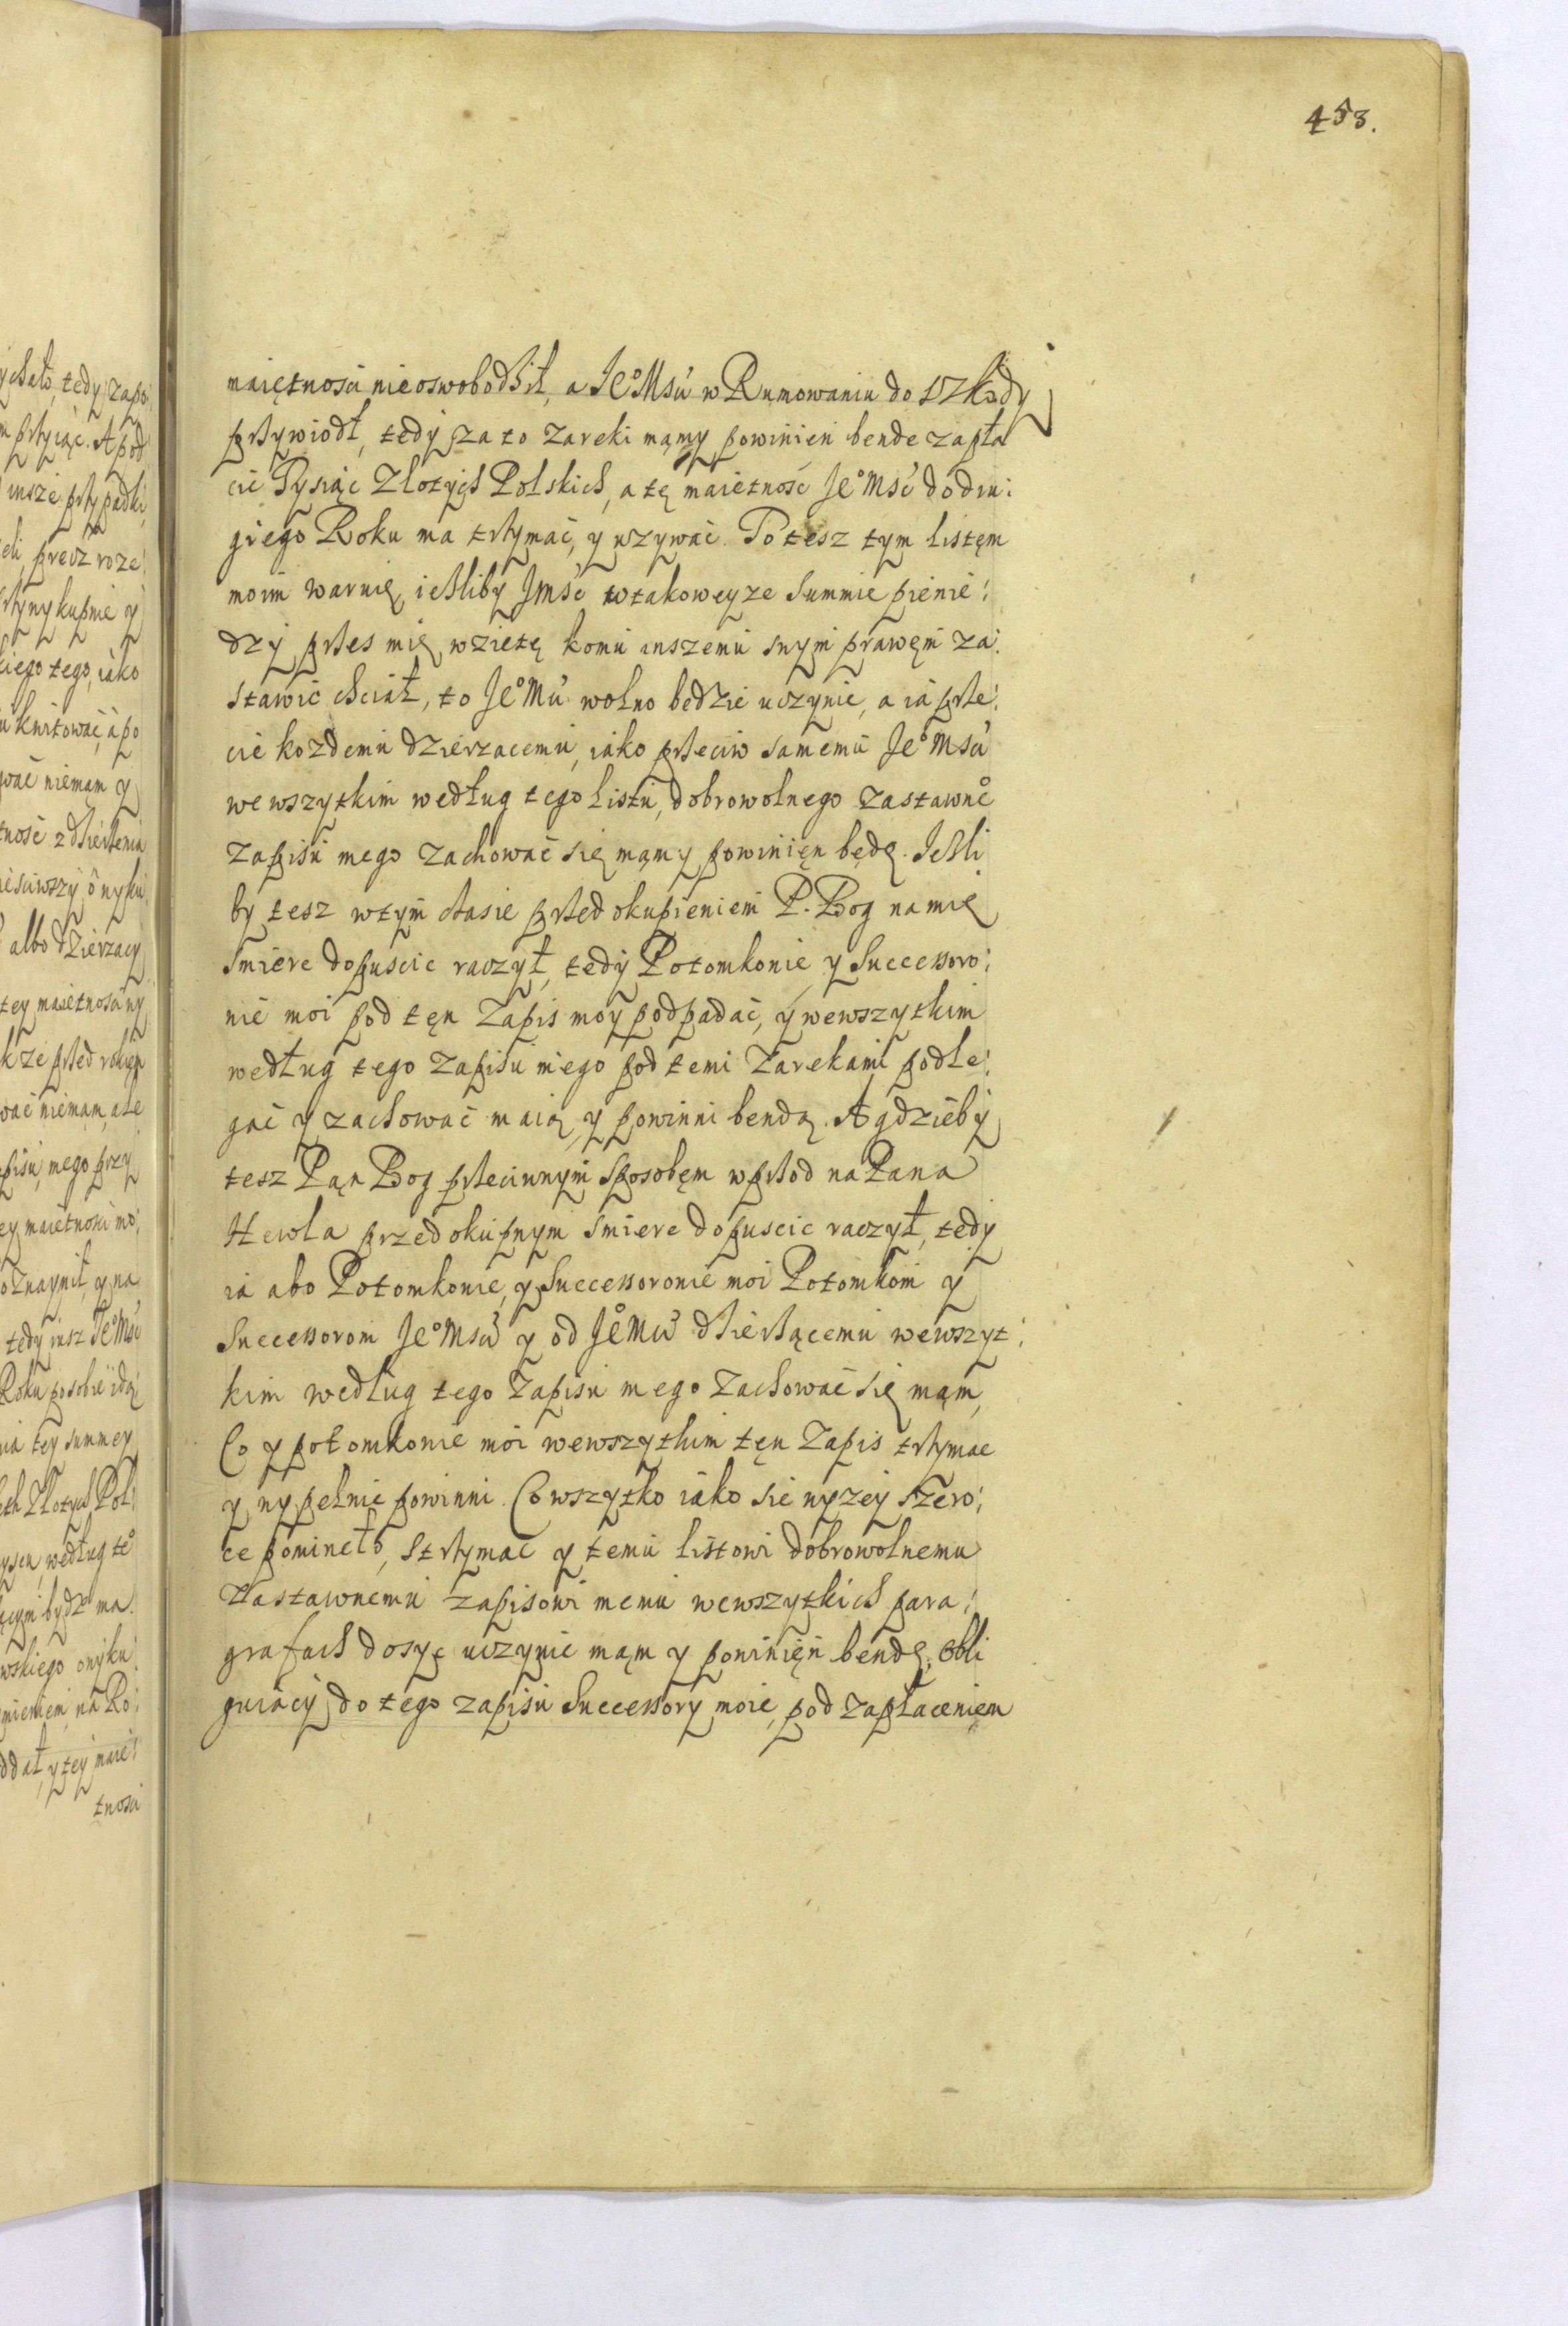 453.
maiętnosci nieoswobodził, a Je°Msci w Rumowaniu do szkody
przywiodł, tedy za to zareki mąmy powinien bende zapła
cic Tysiąc Zlotych Polskich, a tę maietnosc Je°Msć do dru:
giego Roku ma trzymać, y uzywać. To tesz tym listęm
moim waruię, iesliby Jmsć w takoweyze Summie pienie:
dzy przes mię wzietę komu inszemu snym prawęm za:
stawić chciał, to Je°Mci wolno będzie uczynic, a ia prze:
cie kozdemu dzierzacemu, iako przeciw samemu Je°Msci
wewszytkim według tego listu, dobrowolnego zastawne°
zapisu mego zachować się mąmy powinięn będę. Jesli
by tesz wtym czasie przed okupieniem P. Bog na mię
smierc dopuscic raczył, tedy Potomkonie y Successoro:
nie moi pod tęn Zapis moy podpadać, y wewszytkim
według tego Zapisu mego pod temi Zarekami podle:
gać y zachować maią y powinni bendą. A gdzieby
tesz Pąn Bog przeciwnym sposobęm wprzod na Pana
Hewla przed okupnym smierc dopuscic raczył, tedy
ia abo Potomkonie, y Successoronie moi Potomkom y
Successorom Je°Msci y od Je°Mci dzierżącemu wewszyt:
kim według tego Zapisu mego Zachować się mąm,
Co y potomkonie moi wewszytkim tęn Zapis trzymac
y wypełnic powinni. Co wszytko iako sie wyzey szero:
ce pomineło, strzymac y temu listowi dobrowolnemu
Zastawnemu zapisowi memu wewszytkich para:
grafach dosyc uczynic mąm y powinięn bendę, Obli
guiącÿ do tego zapisu Successory moie, pod zapłaceniem